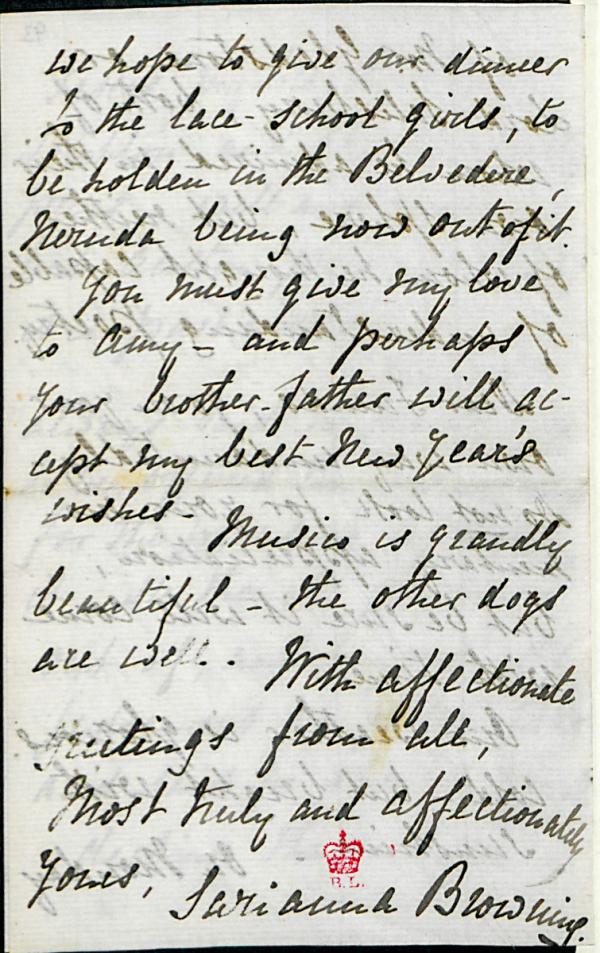 we hope to give our dinner
to the lace-school girls, to
be holden in the Belvedere,
Neruda being now out of it.
You must give my love
to Amy - and perhaps
your brother-father will ac-
cept my best New Year's
wishes - Musico is grandly
beautiful - the other dogs
are well. With affectionate
greetings from all,
Most truly and affectionately
Yours, Sarianna Browning.
B.L.